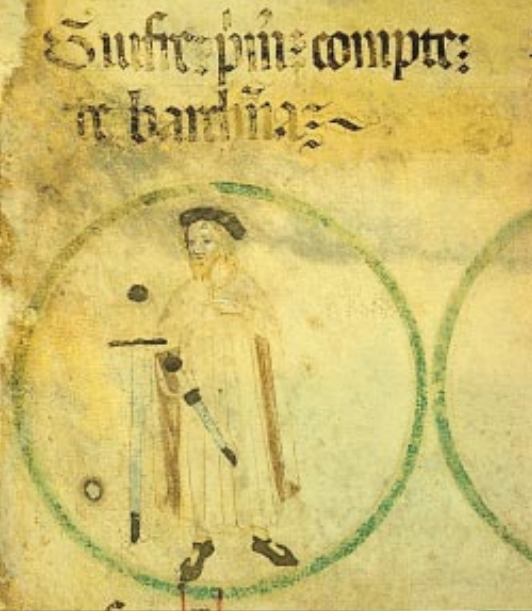 Guifre: p̃m̃: compte:
de barchña:~